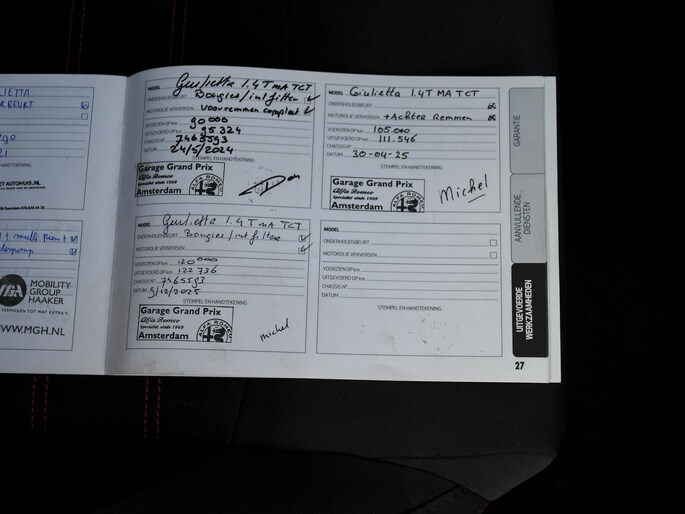 LIETTA
RBEURT
HANDTEKENING
ET AUTOHUIS.NL
MOBILITY
GROUP
HAAKER
WWW.MGH.NL
MODEL Giulietta 1.4T MA TCT
ONDERHOUDSBEURT Bougies/int filter
MOTOROLIE VERVERSEN Voorremmen compleet
VOORZIEN OP km 90000
UITGEVOERD OP km 95324
CHASSIS N° 7465593
DATUM 24/5/2024
STEMPEL EN HANDTEKENING
Garage Grand Prix
Alfa Romeo
Specialist sinds 1969
Amsterdam
ALFA ROMEO
MODEL Giulietta 1.4T MA TCT
ONDERHOUDSBEURT Bougies/int filter
MOTOROLIE VERVERSEN
VOORZIEN OP km 120000
UITGEVOERD OP km 122736
CHASSIS N° 7465593
DATUM 9/12/2025
STEMPEL EN HANDTEKENING
Garage Grand Prix
Alfa Romeo
Specialist sinds 1969
Amsterdam
ALFA ROMEO
michel
MODEL Giulietta 1.4T MA TCT
ONDERHOUDSBEURT
MOTOROLIE VERVERSEN + Achter Remmen
VOORZIEN OP km 105.000
UITGEVOERD OP km 111.546
CHASSIS N°
DATUM 30-04-25
STEMPEL EN HANDTEKENING
Garage Grand Prix
Alfa Romeo
Specialist sinds 1969
Amsterdam
ALFA ROMEO
Michel
MODEL
ONDERHOUDSBEURT
MOTOROLIE VERVERSEN
VOORZIEN OP km
UITGEVOERD OP km
CHASSIS N°
DATUM
STEMPEL EN HANDTEKENING
GARANTIE
AANVULLENDE
DIENSTEN
UITGEVOERDE
WERKZAAMHEDEN
27